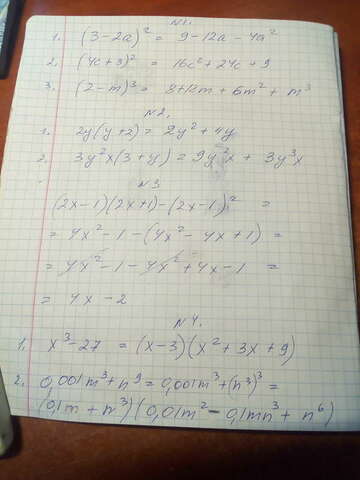 №1.
1. (3-2a)² = 9-12a-4a²
2. (4c+3)² = 16c²+24c+9
3. (2-m)³ = 8+12m+6m²+m³
№2.
1. 2y(y+2) = 2y²+4y
2. 3y²x(3+y) = 9y²x + 3y³x
№3
(2x-1)(2x+1)-(2x-1)² =
= 4x²-1-(4x²-4x+1) =
= 4x²-1-4x²+4x-1 =
= 4x-2
№4.
1. x³-27 = (x-3)(x²+3x+9)
2. 0,001m³+n⁹ = 0,001m³+(n³)³ =
(0,1m+n³)(0,01m²-0,1mn³+n⁶)